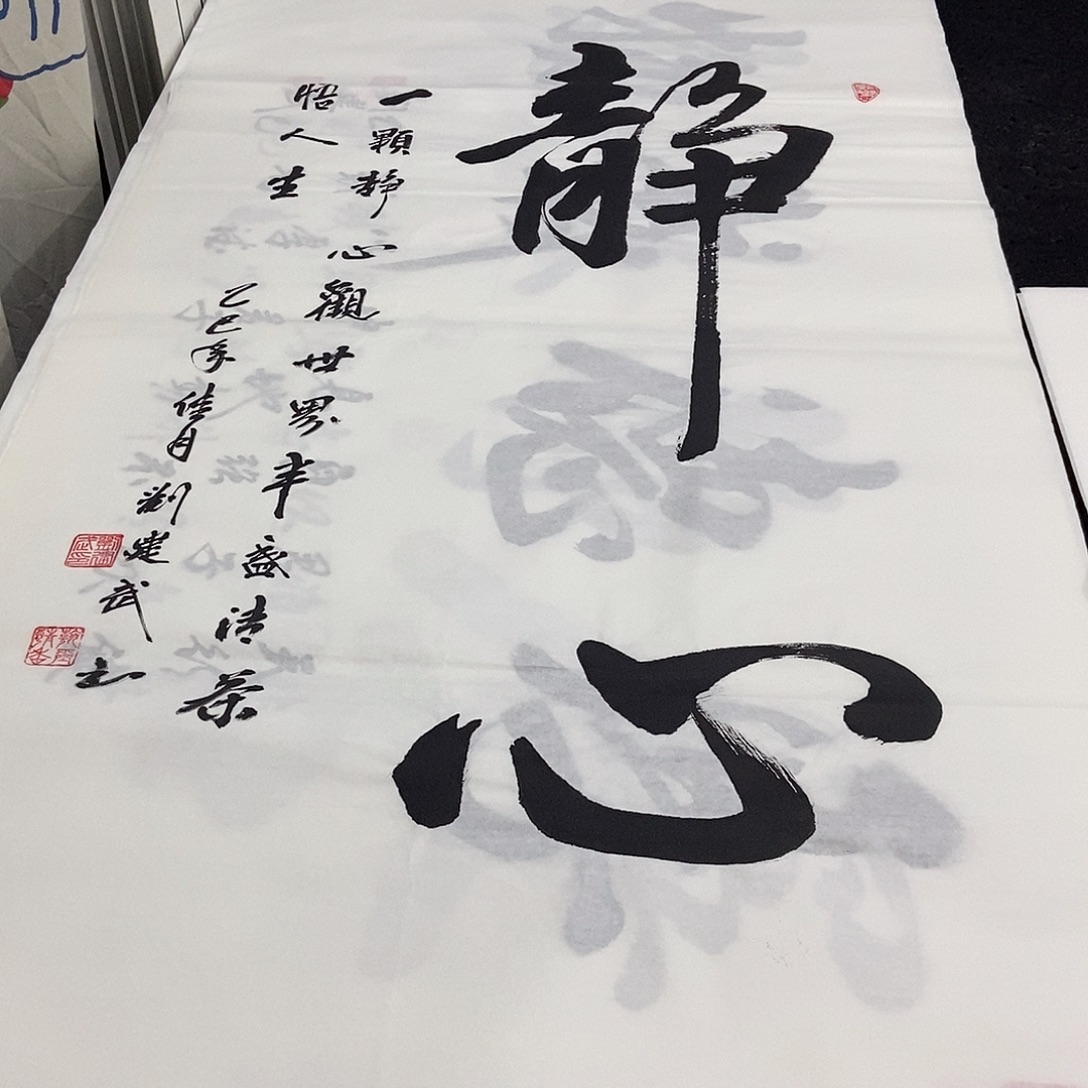 静心
一顆静心觀世界半盏清茶
悟人生
乙巳年佳月劉建武书